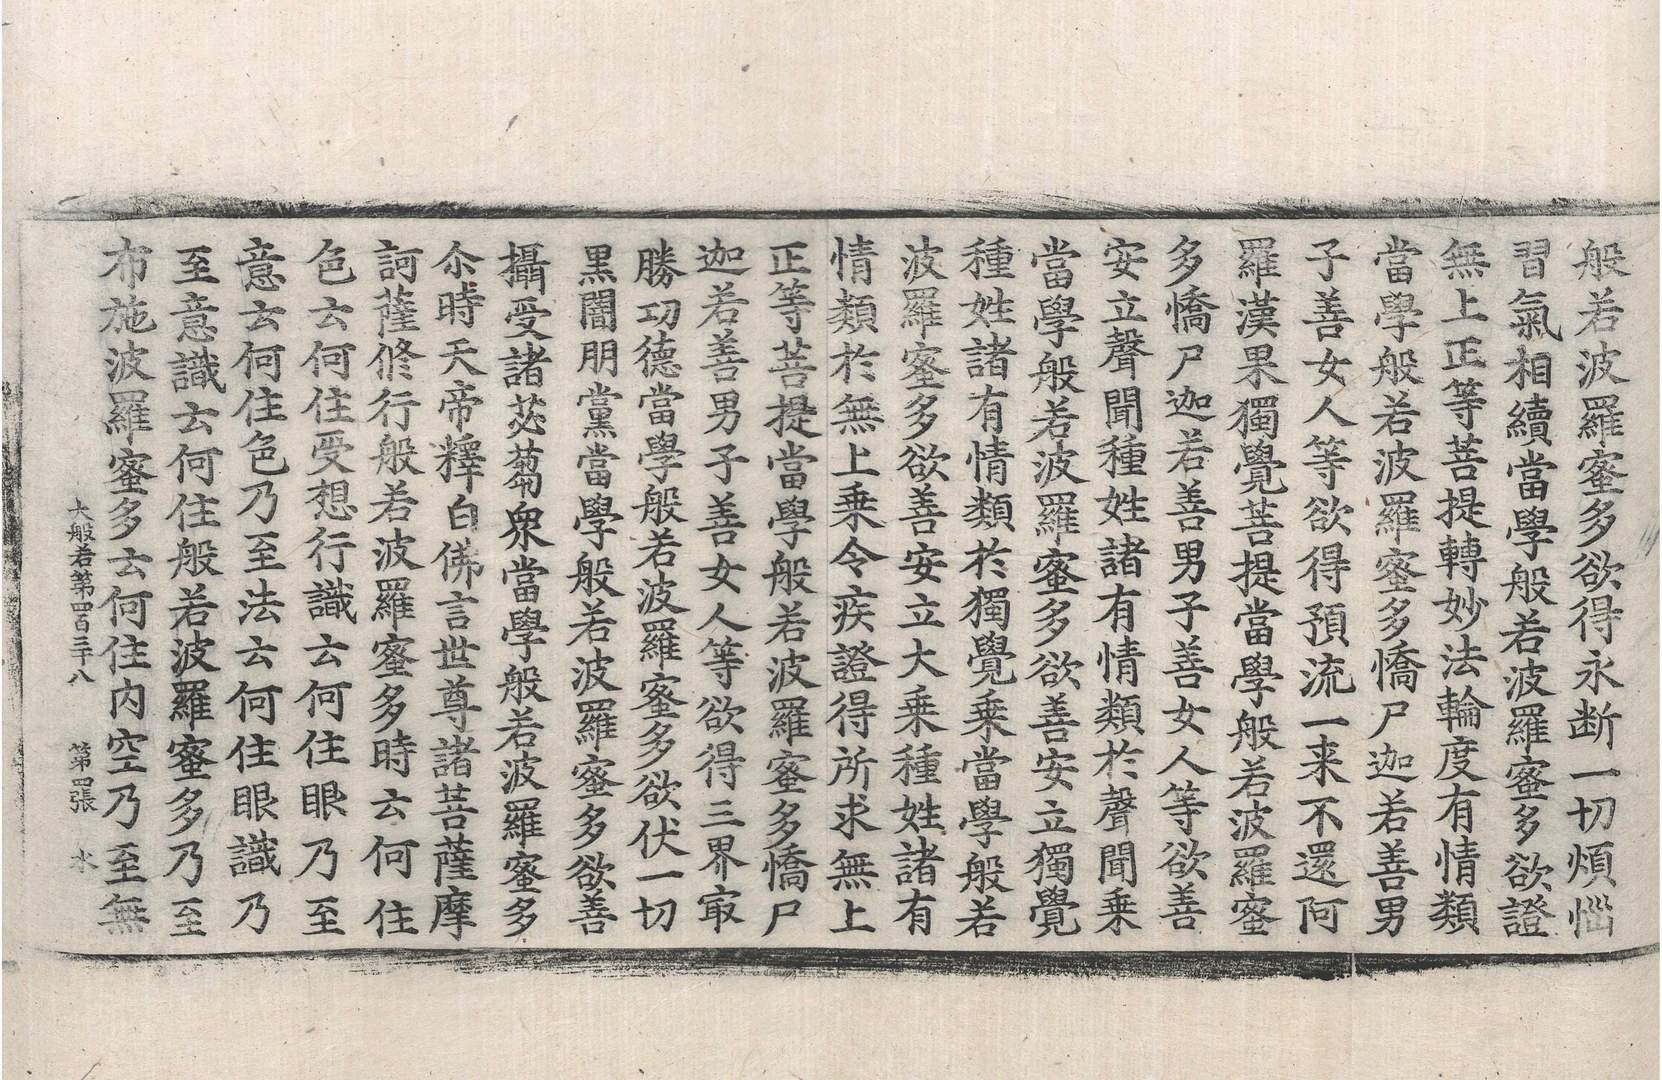 般若波羅蜜多欲得永断一切煩惱
習氣相續當學般若波羅蜜多欲證
無上正等菩提轉妙法輪度有情類
當學般若波羅蜜多憍尸迦若善男
子善女人等欲得預流一来不還阿
羅漢果獨覺菩提當學般若波羅蜜
多憍尸迦若善男子善女人等欲善
安立聲聞種姓諸有情類於聲聞乗
當學般若波羅蜜多欲善安立獨覺
種姓諸有情類於獨覺乗當學般若
波羅蜜多欲善安立大乗種姓諸有
情類於無上乗令疾證得所求無上
正等菩提當學般若波羅蜜多憍尸
迦若善男子善女人等欲得三界㝡
勝功德當學般若波羅蜜多欲伏一切
黒闇朋黨當學般若波羅蜜多欲善
攝受諸苾蒭衆當學般若波羅蜜多
尒時天帝釋白佛言世尊諸菩薩摩
訶薩修行般若波羅蜜多時云何住
色云何住受想行識云何住眼乃至
意云何住色乃至法云何住眼識乃
至意識云何住般若波羅蜜多乃至
布施波羅蜜多云何住内空乃至無
大般若第四百三十八 第四張 水